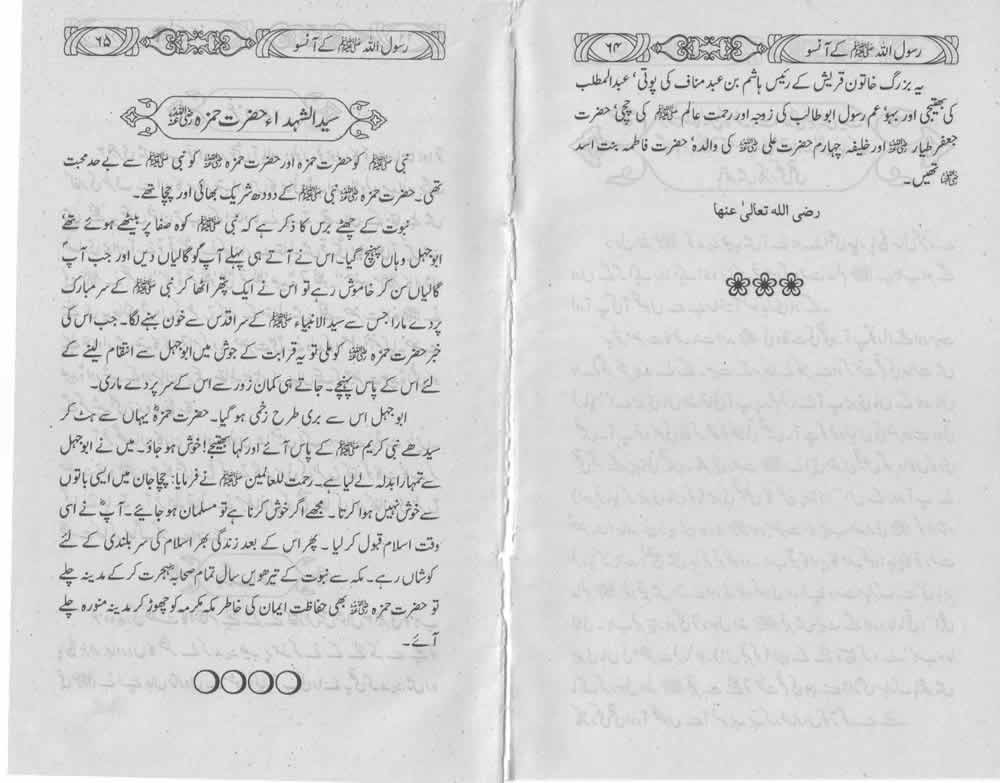 رسول اللہ ﷺ کے آنسو
۶۴
یہ بزرگ خاتون قریش کے رئیس ہاشم بن عبد مناف کی پوتی‘ عبدالمطلب
کی بھتیجی اور بہو‘ عم رسول ابو طالب کی زوجہ اور رحمت عالم ﷺ کی چچی‘ حضرت
جعفر طیار رضی اللہ عنہ اور خلیفہ چہارم حضرت علی رضی اللہ عنہ کی والدہ‘ حضرت فاطمہ بنت اسد
رضی اللہ عنہا تھیں۔
رضی الله تعالىٰ عنها
رسول اللہ ﷺ کے آنسو
۶۵
سید الشہداء حضرت حمزہ رضی اللہ عنہ
نبی ﷺ کو حضرت حمزہ اور حضرت حمزہ رضی اللہ عنہ کو نبی ﷺ سے بے حد محبت
تھی۔ حضرت حمزہ رضی اللہ عنہ نبی ﷺ کے دودھ شریک بھائی اور چچا تھے۔
نبوت کے چھٹے برس کا ذکر ہے کہ نبی ﷺ کوہ صفا پر بیٹھے ہوئے تھے‘
ابوجہل وہاں پہنچ گیا۔ اس نے آتے ہی پہلے آپؐ کو گالیاں دیں اور جب آپؐ
گالیاں سن کر خاموش رہے تو اس نے ایک پتھر اٹھا کر نبی ﷺ کے سر مبارک
پر دے مارا جس سے سید الانبیاء ﷺ کے سر اقدس سے خون بہنے لگا۔ جب اس کی
خبر حضرت حمزہ رضی اللہ عنہ کو ملی تو یہ قرابت کے جوش میں ابوجہل سے انتقام لینے کے
لئے اس کے پاس پہنچے۔ جاتے ہی کمان زور سے اس کے سر پر دے ماری۔
ابوجہل اس سے بری طرح زخمی ہو گیا۔ حضرت حمزہؓ یہاں سے ہٹ کر
سیدھے نبی کریم ﷺ کے پاس آئے اور کہا بھتیجے! خوش ہو جاؤ۔ میں نے ابوجہل
سے تمہارا بدلہ لے لیا ہے۔ رحمت للعالمین ﷺ نے فرمایا: چچا جان میں ایسی باتوں
سے خوش نہیں ہوا کرتا۔ مجھے اگر خوش کرنا ہے تو مسلمان ہو جایے۔ آپؓ نے اسی
وقت اسلام قبول کر لیا۔ پھر اس کے بعد زندگی بھر اسلام کی سر بلندی کے لئے
کوشاں رہے۔ مکہ سے نبوت کے تیرھویں سال تمام صحابہ ہجرت کر کے مدینہ چلے
تو حضرت حمزہ رضی اللہ عنہ بھی حفاظت ایمان کی خاطر مکہ مکرمہ کو چھوڑ کر مدینہ منورہ چلے
آئے۔